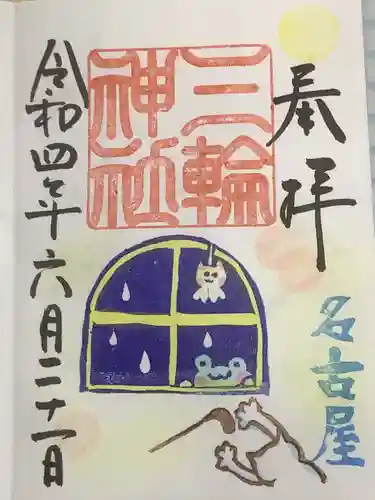 奉拝
三輪
神社
名古屋
令和四年六月二十一日